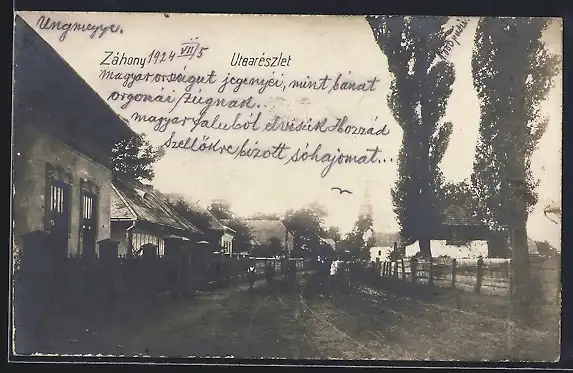 Ungmegye.
Záhony 1924 VII/5 Utcarészlet
magyarországut jegenyéi, mint bánat
orgonái zúgnak..
magyar faluból elviszik Hozzád
Szellőkre bizott sóhajomat...